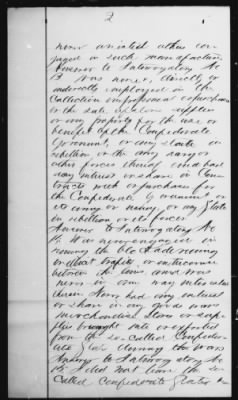 2
never assisted others en-
gaged in such manufacture
Answer to Interrogatory No
I was never, directly or
indirectly employed in the
Collection impressment or purchase
or the sale of stores supplies
or any property for the use or
benefit of the Confederate
Government, or any state in
rebellion or the army navy or
other forces thereof and had
any interest or share in Con
tracts with or purchases for
the Confederate Government or
its army or navy, or any State
in rebellion or its forces
Answer to Interrogatory No
I was never engaged in
running the blockade
or illicit traffic or intercourse
between the lines, and was
never in any way interested
therein Never had any interest
or share in any goods wares
merchandise stores or sup
plies brought into or exported
from the so-called Confeder-
ate States during the war
Answer to Interrogatory No
I did not leave the so-
Called Confederate States